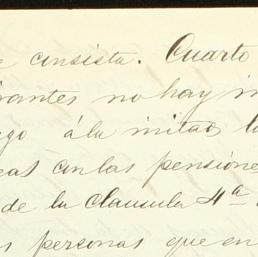 consista. Cuarto
no hay
á la mitad
con las pensione
de la clausula 4ª
personas que en